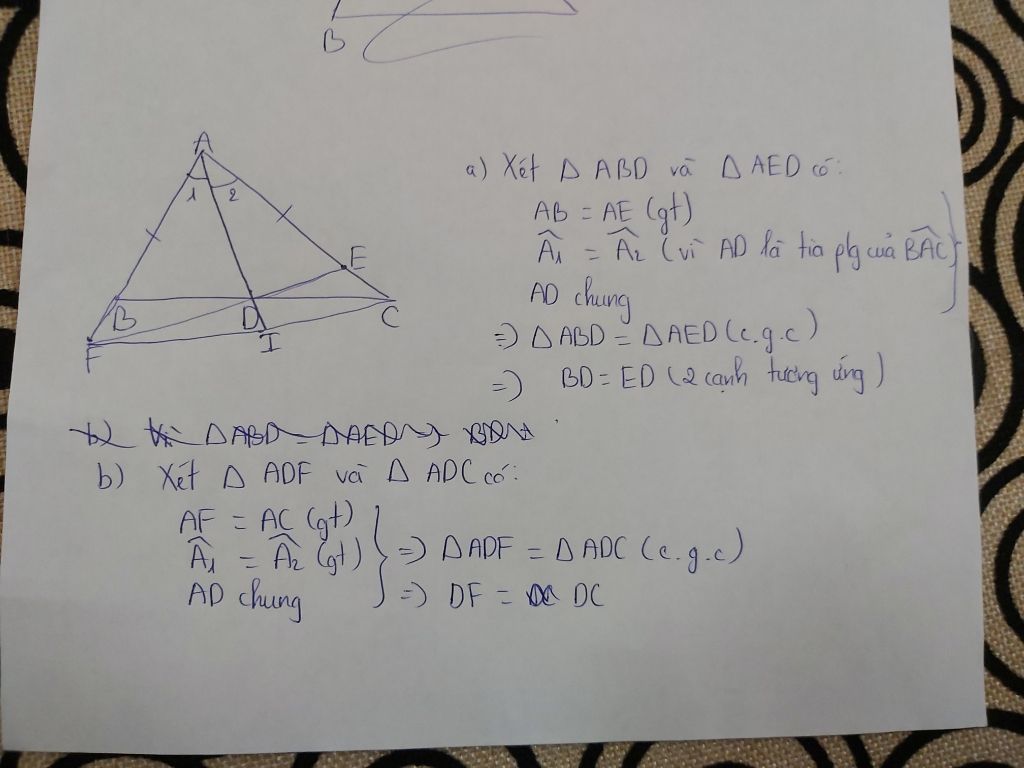 B
A
1 2
E
B D C
F I
a) Xét Δ ABD và Δ AED có:
AB = AE (gt)
Â₁ = Â₂ (vì AD là tia pg của BÂC)
AD chung
=) Δ ABD = Δ AED (c.g.c)
=) BD = ED (2 cạnh tương ứng)
b) Vì Δ ABD = Δ AED =) BD
b) Xét Δ ADF và Δ ADC có:
AF = AC (gt)
Â₁ = Â₂ (gt) =) Δ ADF = Δ ADC (c.g.c)
AD chung =) DF = DC